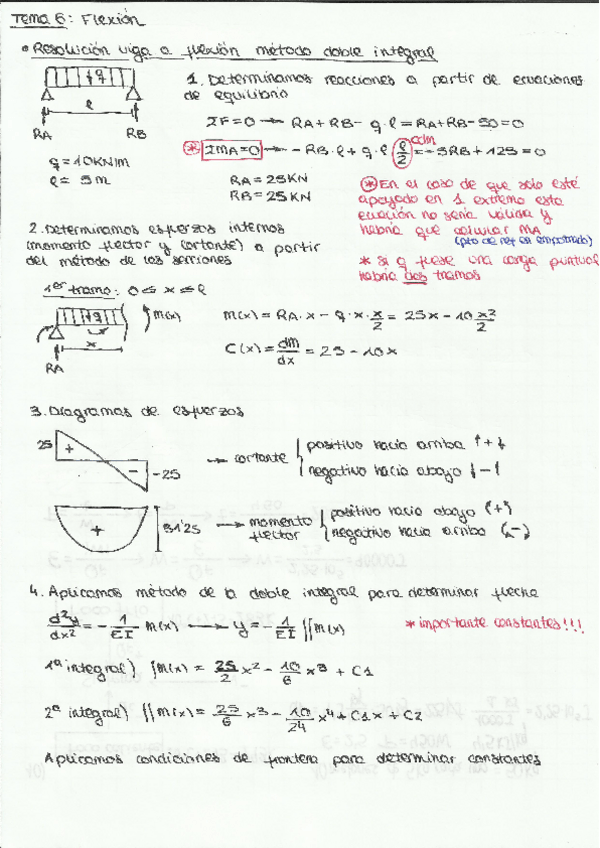 Tema 6: Flexión
• Resolución viga a flexión método doble integral
1. Determinamos reacciones a partir de ecuaciones
de equilibrio
q
l
RA RB
ΣF=0 → RA+RB- q·l = RA+RB-50=0
* ΣMA=0 → -RB·l+q·l l/2 = -5RB+125=0
cdm
q=10KN/m
l= 5m
RA=25KN
RB=25KN
* En el caso de que solo esté
apoyado en 1 extremo esta
ecuación no sería válida y
habría que calcular MA
(pto de ref en empotrado)
* si q fuese una carga puntual
habría dos tramos
2. Determinamos esfuerzos internos
(momento flector y cortante) a partir
del método de las secciones
1er tramo: 0 ≤ x ≤ l
q
M(x)
x
RA
M(x) = RA·x - q·x·x/2 = 25x - 10 x²/2
C(x) = dM/dx = 25 - 10x
3. Diagramas de esfuerzos
25 + - -25
→ cortante
positivo hacia arriba ↑+↓
negativo hacia abajo ↓-↑
+ 31'25
→ momento
flector
positivo hacia abajo (+)
negativo hacia arriba (-)
4. Aplicamos método de la doble integral para determinar flecha
d²y/dx² = - 1/EI M(x) → y = - 1/EI ∫∫M(x)
* importante constantes!!!
1ª integral) ∫M(x) = 25/2 x² - 10/6 x³ + C1
2ª integral) ∫∫M(x) = 25/6 x³ - 10/24 x⁴ + C1x + C2
Aplicamos condiciones de frontera para determinar constantes